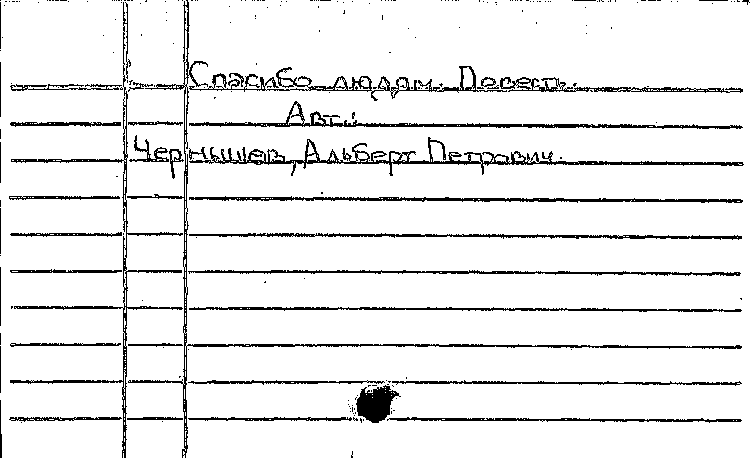 Спасибо людям. Повесть.
Авт.:
Чернышев, Альберт Петрович.